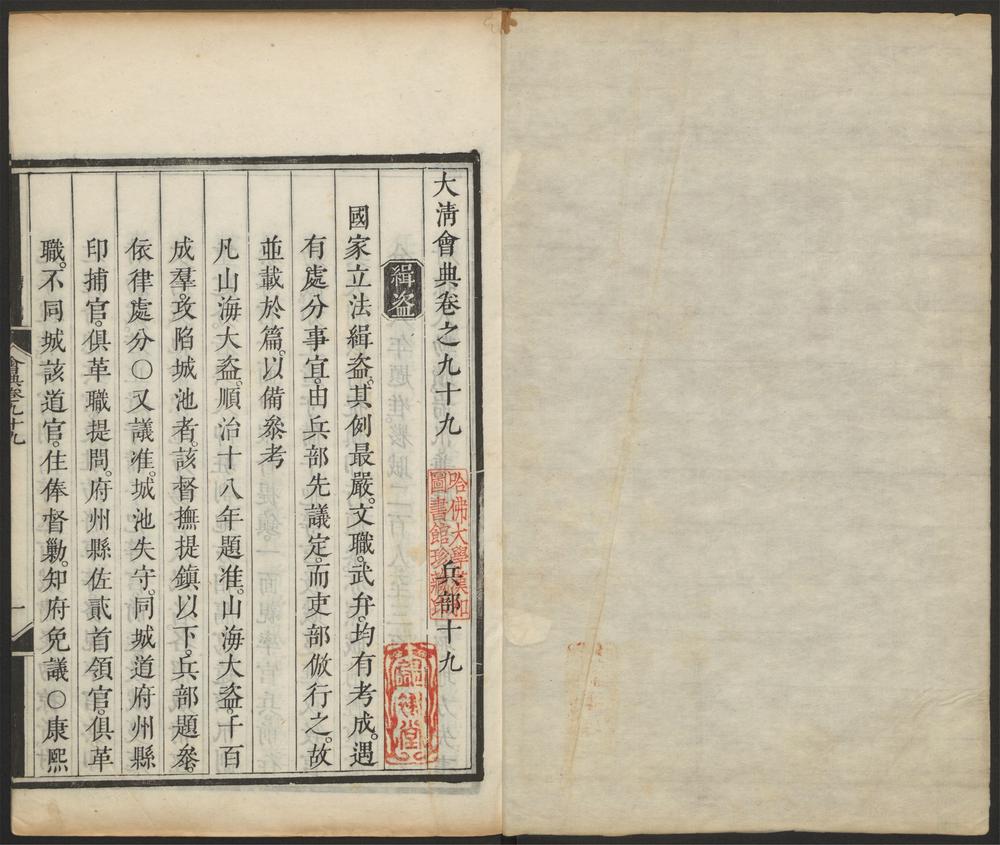 大淸會典卷之九十九 兵部十九
哈佛大學漢和
圖書館珍藏印
緝盗
國家立法緝盗。其例最嚴。文職。武弁。均有考成。遇
有處分事宜。由兵部先議定。而吏部倣行之。故
並載於篇。以備叅考
凡山海大盗。順治十八年題准。山海大盗。千百
成羣。攻陷城池者。該督撫提鎮以下。兵部題叅。
依律處分○又議准。城池失守。同城道府州縣
印捕官。俱革職提問。府州縣佐貳首領官。俱革
職。不同城該道官。住俸督勦。知府免議○康熙
會典卷九十九
一